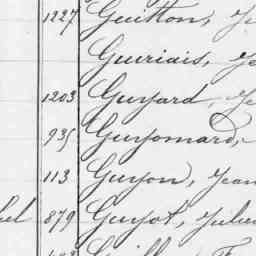 1227 Guitton, Je
Guiriais, Je
1203 Guyard, Je
935 Guyomard,
113 Guyon, Jean
el 879 Guyot, Julien